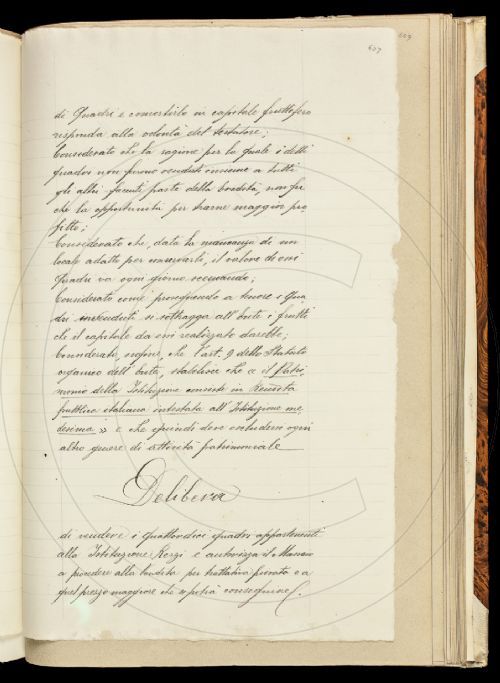 609
607
di Quadri e convertirlo in capitale fruttifero
risponda alla volontà del testatore;
Considerato che la ragione per la quale i detti
quadri non furono venduti insieme a tutti
gli altri facenti parte della eredità, non fu
che la opportunità per trarne maggior pro-
fitto;
Considerato che, data la mancanza di un
locale adatto per conservarli, il valore di essi
Quadri va ogni giorno scemando;
Considerato come proseguendo a tenere i Qua-
dri invenduti si sottragga all'Ente i frutti
che il capitale da essi realizzato darebbe;
Considerato, infine, che l'art. 9 dello Statuto
organico dell'Ente, stabilisce che « il Patri-
monio della Istituzione consiste in Rendita
pubblica italiana intestata all'Istituzione me-
desima » e che quindi deve escludersi ogni
altro genere di attività patrimoniale
Delibera
di vendere i quattordici quadri appartenenti
alla Istituzione e autorizza il
a procedere alla vendita per trattativa privata e a
quel prezzo maggiore che si potrà conseguire.